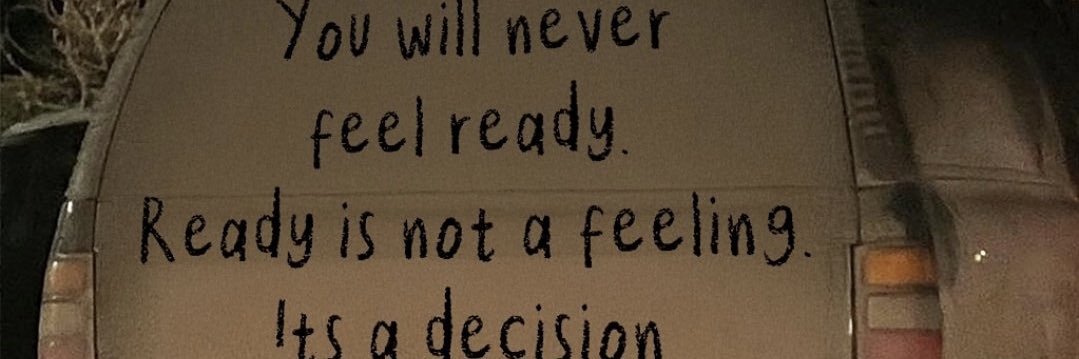 You will never
feel ready.
Ready is not a feeling.
Its a decision